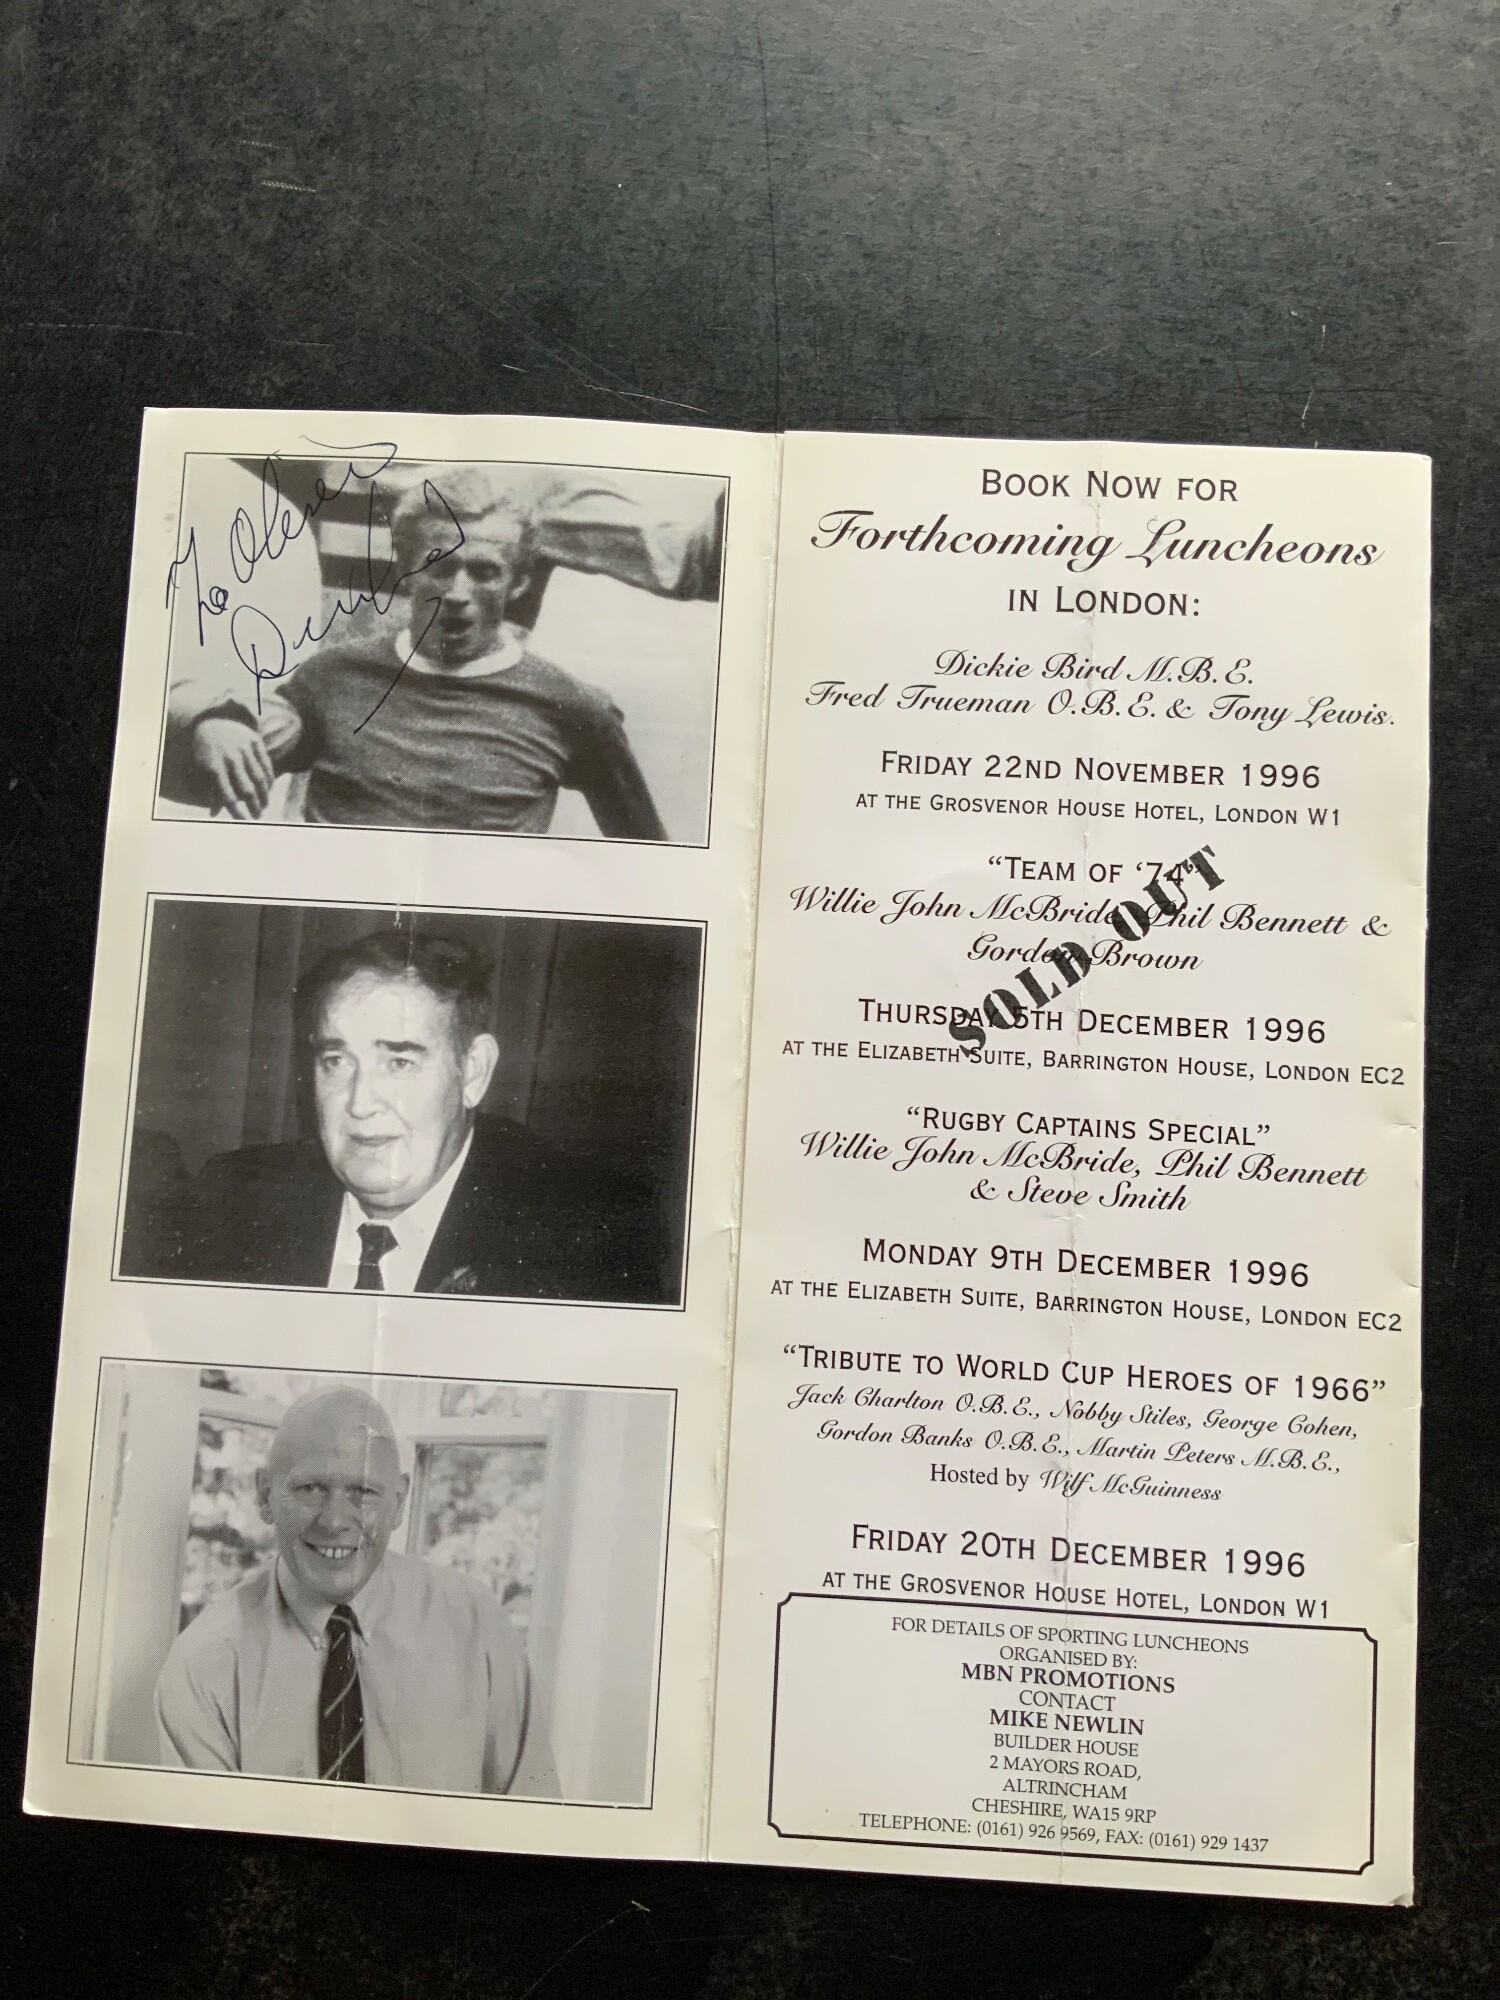 To Oliver
BOOK NOW FOR
Forthcoming Luncheons
IN LONDON:
Dickie Bird M.B.E.
Fred Trueman O.B.E. & Tony Lewis.
FRIDAY 22ND NOVEMBER 1996
AT THE GROSVENOR HOUSE HOTEL, LONDON W1
“TEAM OF ‘74”
Willie John McBride, Phil Bennett &
Gordon Brown
SOLD OUT
THURSDAY 5TH DECEMBER 1996
AT THE ELIZABETH SUITE, BARRINGTON HOUSE, LONDON EC2
“RUGBY CAPTAINS SPECIAL”
Willie John McBride, Phil Bennett
& Steve Smith
MONDAY 9TH DECEMBER 1996
AT THE ELIZABETH SUITE, BARRINGTON HOUSE, LONDON EC2
“TRIBUTE TO WORLD CUP HEROES OF 1966”
Jack Charlton O.B.E., Nobby Stiles, George Cohen,
Gordon Banks O.B.E., Martin Peters M.B.E.,
Hosted by Wilf McGuinness
FRIDAY 20TH DECEMBER 1996
AT THE GROSVENOR HOUSE HOTEL, LONDON W1
FOR DETAILS OF SPORTING LUNCHEONS
ORGANISED BY:
MBN PROMOTIONS
CONTACT
MIKE NEWLIN
BUILDER HOUSE
2 MAYORS ROAD,
ALTRINCHAM
CHESHIRE, WA15 9RP
TELEPHONE: (0161) 926 9569, FAX: (0161) 929 1437